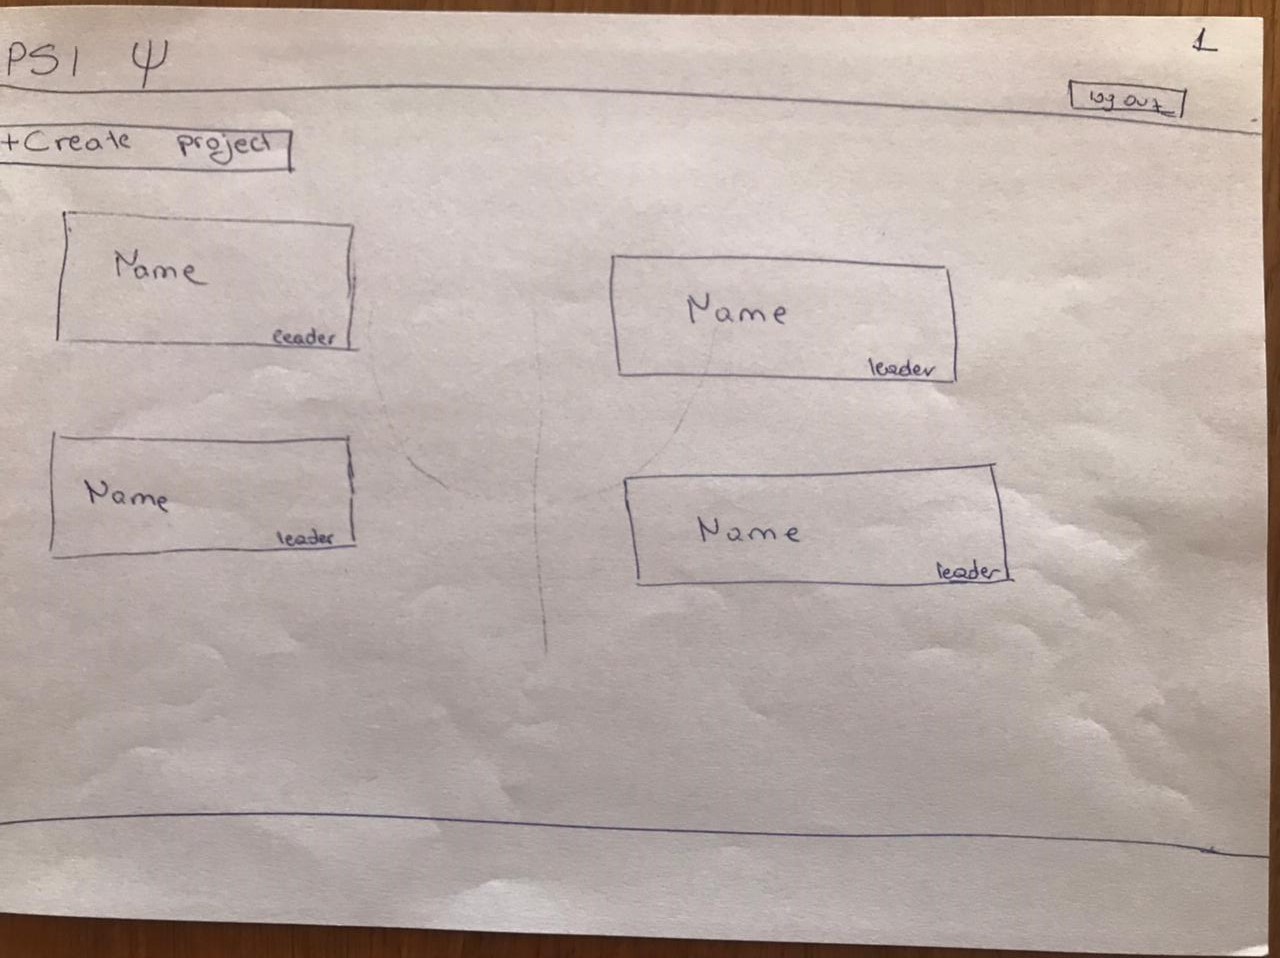 PSI Ψ
1
log out
+Create project
Name
leader
Name
leader
Name
leader
Name
leader